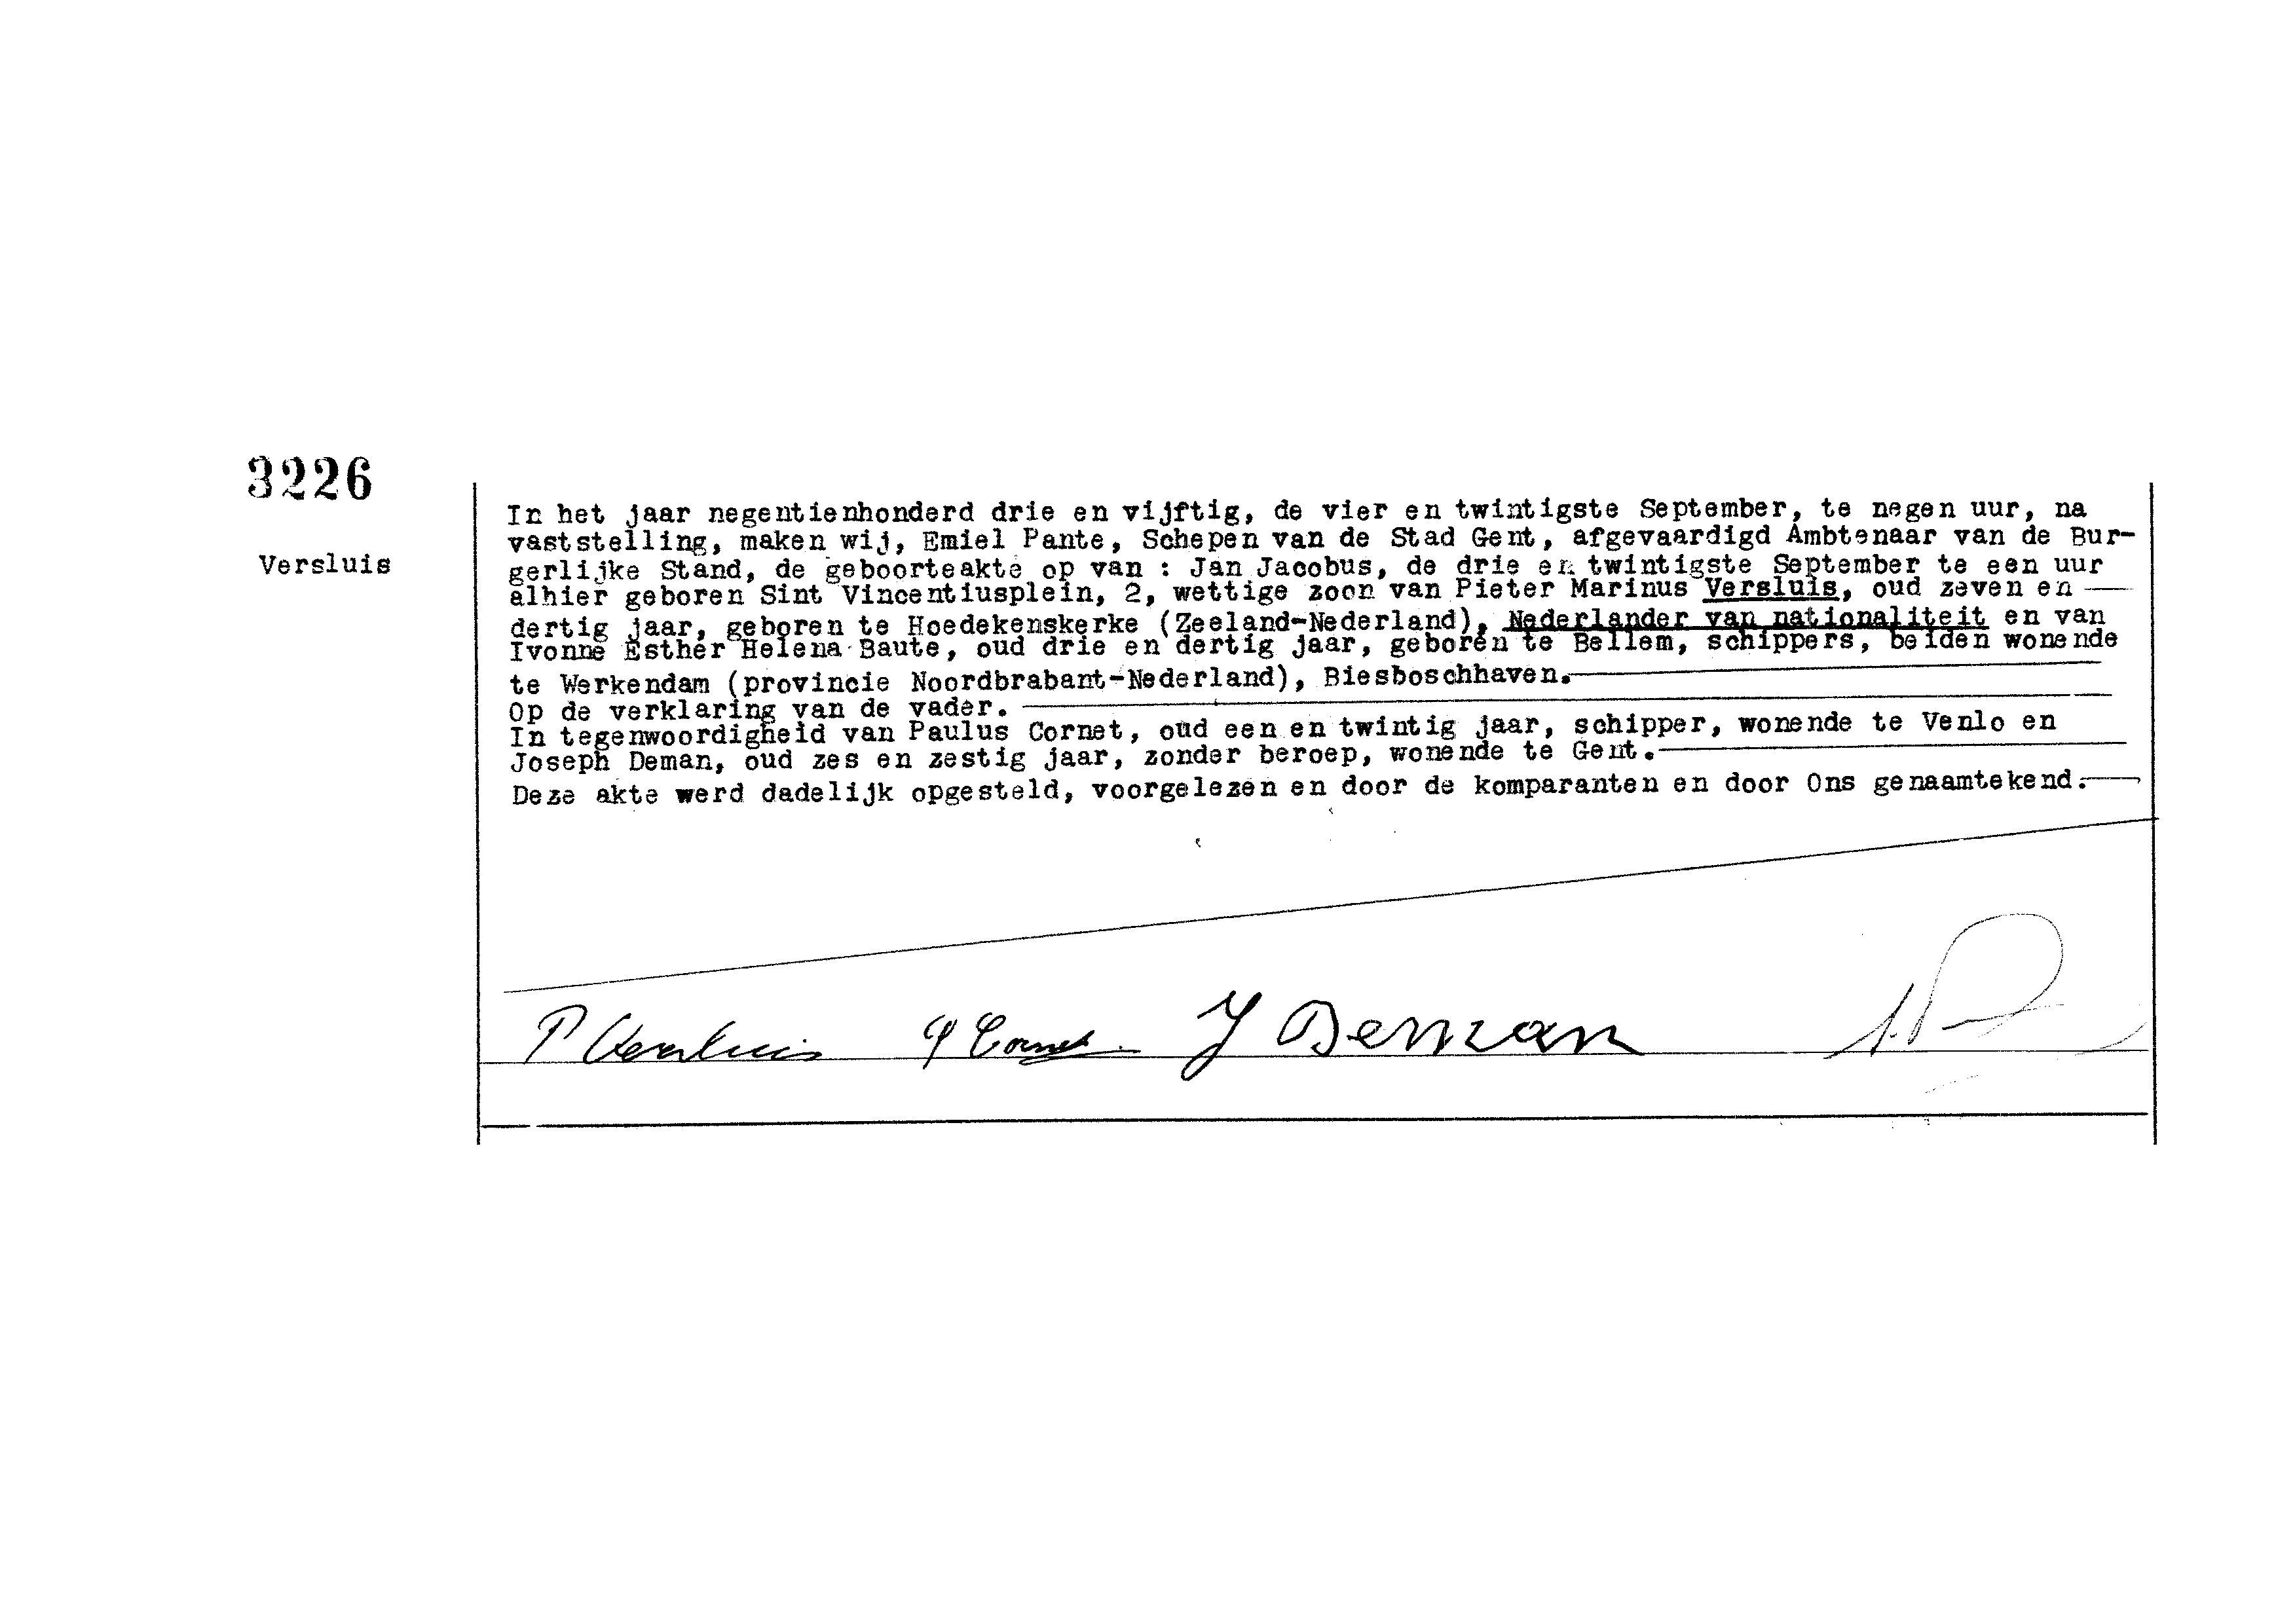 3226
Versluis
In het jaar negentienhonderd drie en vijftig, de vier en twintigste September, te negen uur, na
vaststelling, maken wij, Emiel Pante, Schepen van de Stad Gent, afgevaardigd Ambtenaar van de Bur-
gerlijke Stand, de geboorteakte op van : Jan Jacobus, de drie en twintigste September te een uur
alhier geboren Sint Vincentiusplein, 2, wettige zoon van Pieter Marinus Versluis, oud zeven en
dertig jaar, geboren te Hoedekenskerke (Zeeland-Nederland), Nederlander van nationaliteit en van
Ivonne Esther Helena Baute, oud drie en dertig jaar, geboren te Bellem, schippers, beiden wonende
te Werkendam (provincie Noordbrabant-Nederland), Biesboschhaven.
Op de verklaring van de vader.
In tegenwoordigheid van Paulus Cornet, oud een en twintig jaar, schipper, wonende te Venlo en
Joseph Deman, oud zes en zestig jaar, zonder beroep, wonende te Gent.
Deze akte werd dadelijk opgesteld, voorgelezen en door de komparanten en door Ons genaamtekend.
P Versluis P Cornet J Deman